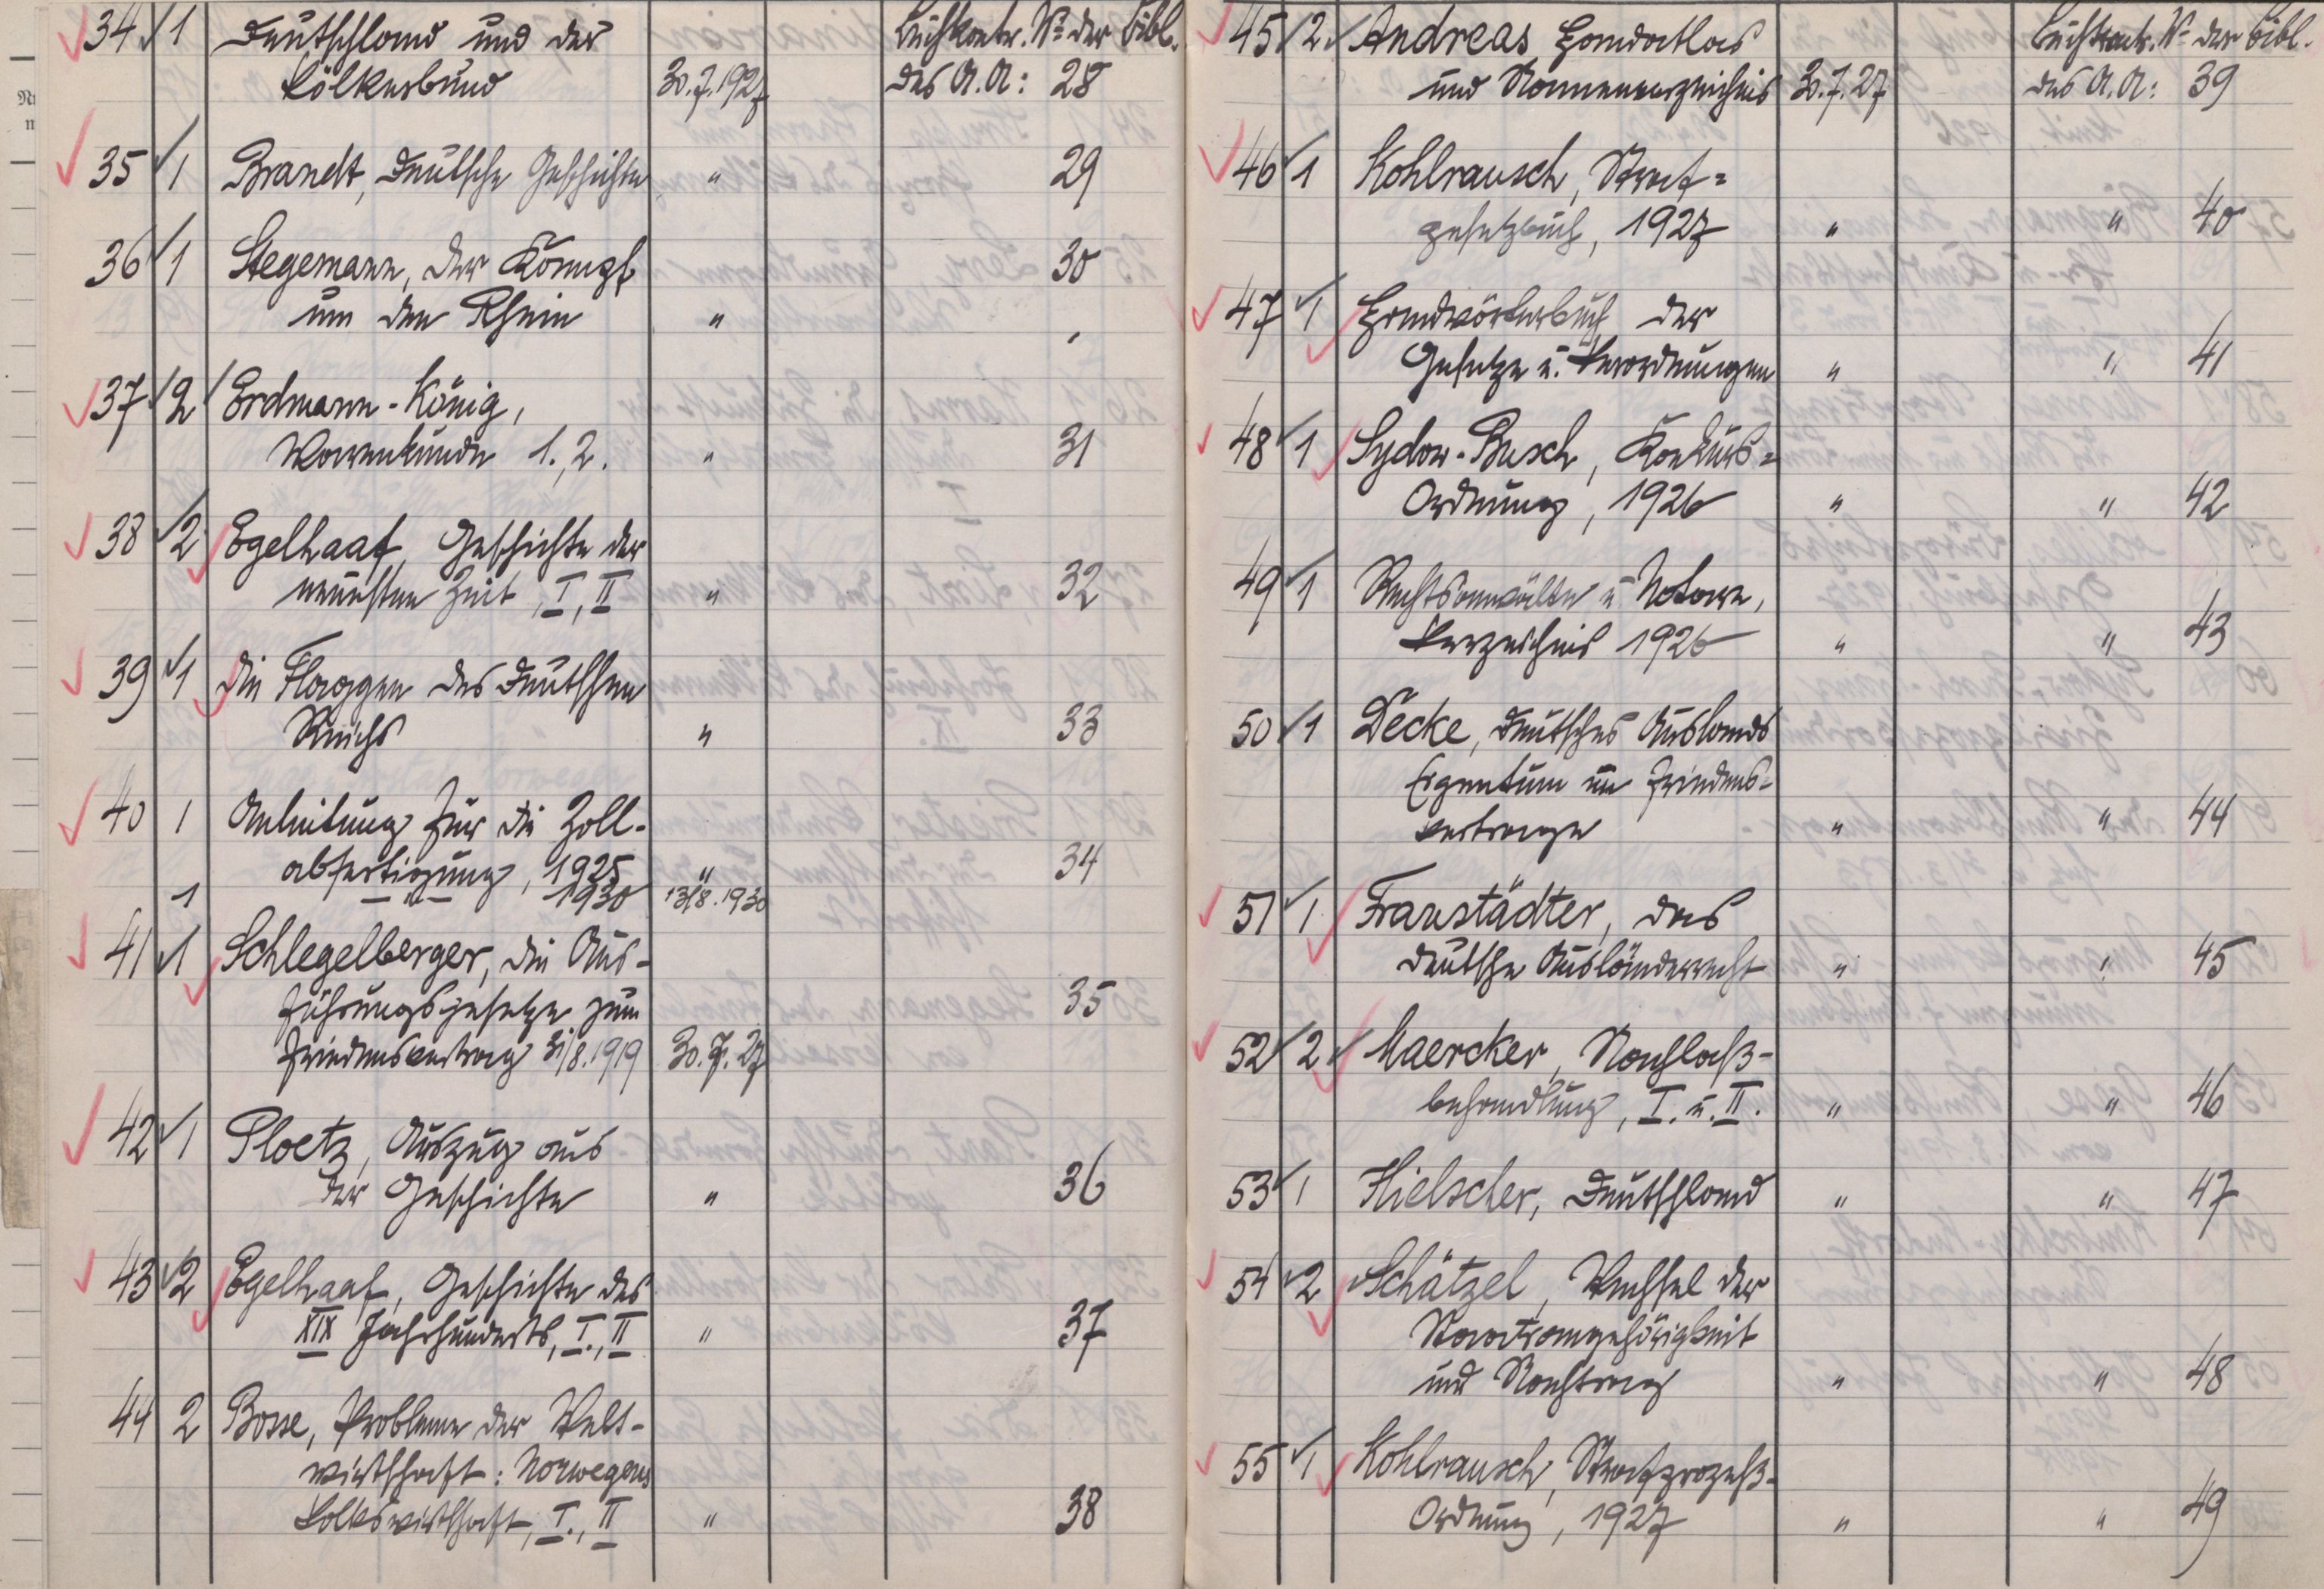 34 1 Deutschland und der Buchkontr. Nº der Bibl.
Völkerbund 30.7.1927 des A.A: 28
35 1 Brandt, Deutsche Geschichte " 29
36 1 Stegemann, Der Kampf 30
um den Rhein "
37 2 Erdmann-König,
Warenkunde 1.,2. " 31
38 2 Egelhaaf, Geschichte der
neuesten Zeit, I, II " 32
39 1 Die Flaggen des Deutschen
Reichs " 33
40 1 Anleitung für die Zoll-
abfertigung, 1925 " 34
1 — " — 1930 13/8.1930
41 1 Schlegelberger, die Aus-
führungsgesetze zum 35
Friedensvertrag 31/8.1919 30.7.27
42 1 Ploetz, Auszug aus
der Geschichte " 36
43 2 Egelhaaf, Geschichte des
XIX Jahrhunderts, I., II " 37
44 2 Bosse, Probleme der Welt-
wirtschaft: Norwegens
Volkswirtschaft, I., II " 38
45 2 Andreas Handatlas Buchkontr. Nº der Bibl.
und Namenverzeichnis 30.7.27 des A.A: 39
46 1 Kohlrausch, Straf=
gesetzbuch, 1927 " " 40
47 1 Handwörterbuch der
Gesetze u. Verordnungen " " 41
48 1 Sydow-Busch, Konkurs=
Ordnung, 1926 " " 42
49 1 Rechtsanwälte u Notare,
Verzeichnis 1926 " " 43
50 1 Decke, Deutsches Auslands
Eigentum im Friedens=
vertrage " " 44
51 1 Fraustädter, das
deutsche Ausländerrecht " " 45
52 2 Maercker, Nachlaß-
behandlung, I. u. II. " " 46
53 1 Hielscher, Deutschland " " 47
54 2 Schätzel, Wechsel der
Staatsangehörigkeit
und Nachtrag " " 48
55 1 Kohlrausch, Strafprozeß-
Ordnung, 1927 " " 49